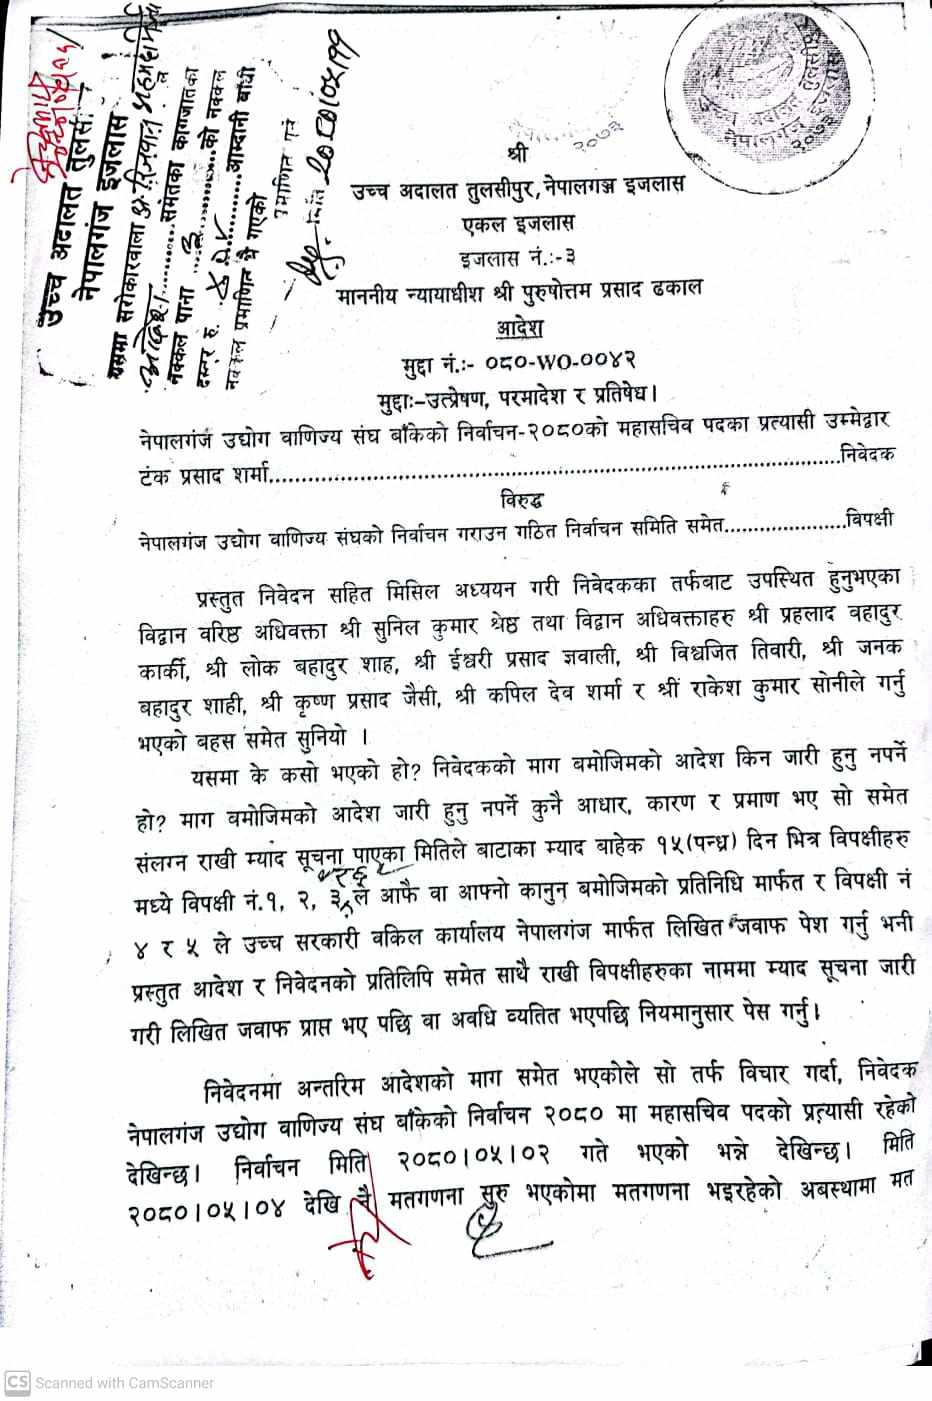 श्री
उच्च अदालत तुलसीपुर, नेपालगञ्ज इजलास
एकल इजलास
इजलास नं.:-३
माननीय न्यायाधीश श्री पुरुषोत्तम प्रसाद ढकाल
आदेश
मुद्दा नं.:- ०८०-WO-००४२
मुद्दाः-उत्प्रेषण, परमादेश र प्रतिषेध।
नेपालगंज उद्योग वाणिज्य संघ बाँकेको निर्वाचन-२०८०को महासचिव पदका प्रत्यासी उम्मेद्वार
टंक प्रसाद शर्मा..........................................................................................निवेदक
विरुद्ध
नेपालगंज उद्योग वाणिज्य संघको निर्वाचन गराउन गठित निर्वाचन समिति समेत.....................विपक्षी
प्रस्तुत निवेदन सहित मिसिल अध्ययन गरी निवेदकका तर्फबाट उपस्थित हुनुभएका
विद्वान वरिष्ठ अधिवक्ता श्री सुनिल कुमार श्रेष्ठ तथा विद्वान अधिवक्ताहरु श्री प्रहलाद बहादुर
कार्की, श्री लोक बहादुर शाह, श्री ईश्वरी प्रसाद ज्ञवाली, श्री विश्वजित तिवारी, श्री जनक
बहादुर शाही, श्री कृष्ण प्रसाद जैसी, श्री कपिल देव शर्मा र श्री राकेश कुमार सोनीले गर्नु
भएको बहस समेत सुनियो ।
यसमा के कसो भएको हो? निवेदकको माग बमोजिमको आदेश किन जारी हुनु नपर्ने
हो? माग बमोजिमको आदेश जारी हुनु नपर्ने कुनै आधार, कारण र प्रमाण भए सो समेत
संलग्न राखी म्याद सूचना पाएका मितिले बाटाका म्याद बाहेक १५(पन्ध्र) दिन भित्र विपक्षीहरु
मध्ये विपक्षी नं.१, २, ३ र ६ ले आफै वा आफ्नो कानुन बमोजिमको प्रतिनिधि मार्फत र विपक्षी नं
४ र ५ ले उच्च सरकारी वकिल कार्यालय नेपालगंज मार्फत लिखित जवाफ पेश गर्नु भनी
प्रस्तुत आदेश र निवेदनको प्रतिलिपि समेत साथै राखी विपक्षीहरुका नाममा म्याद सूचना जारी
गरी लिखित जवाफ प्राप्त भए पछि वा अवधि व्यतित भएपछि नियमानुसार पेस गर्नु।
निवेदनमा अन्तरिम आदेशको माग समेत भएकोले सो तर्फ विचार गर्दा, निवेदक
नेपालगंज उद्योग वाणिज्य संघ बाँकेको निर्वाचन २०८० मा महासचिव पदको प्रत्यासी रहेको
देखिन्छ। निर्वाचन मिति २०८०।०५।०२ गते भएको भन्ने देखिन्छ। मिति
२०८०।०५।०४ देखि नै मतगणना सुरु भएकोमा मतगणना भइरहेको अबस्थामा मत
उच्च अदालत तुलसी
नेपालगंज इजलास
यसमा सरोकारवाला
समेतका कागजातका
नक्कल पाना ३ को नक्कल
दस्तुर रु. आम्दानी बाँधी
नक्कल प्रमाणित भै गएको
प्रमाणित गर्ने
मिति २०८०।०५।११
उच्च अदालत तुलसीपुर
नेपालगंज इजलास
२०७३
२०७३
CS Scanned with CamScanner